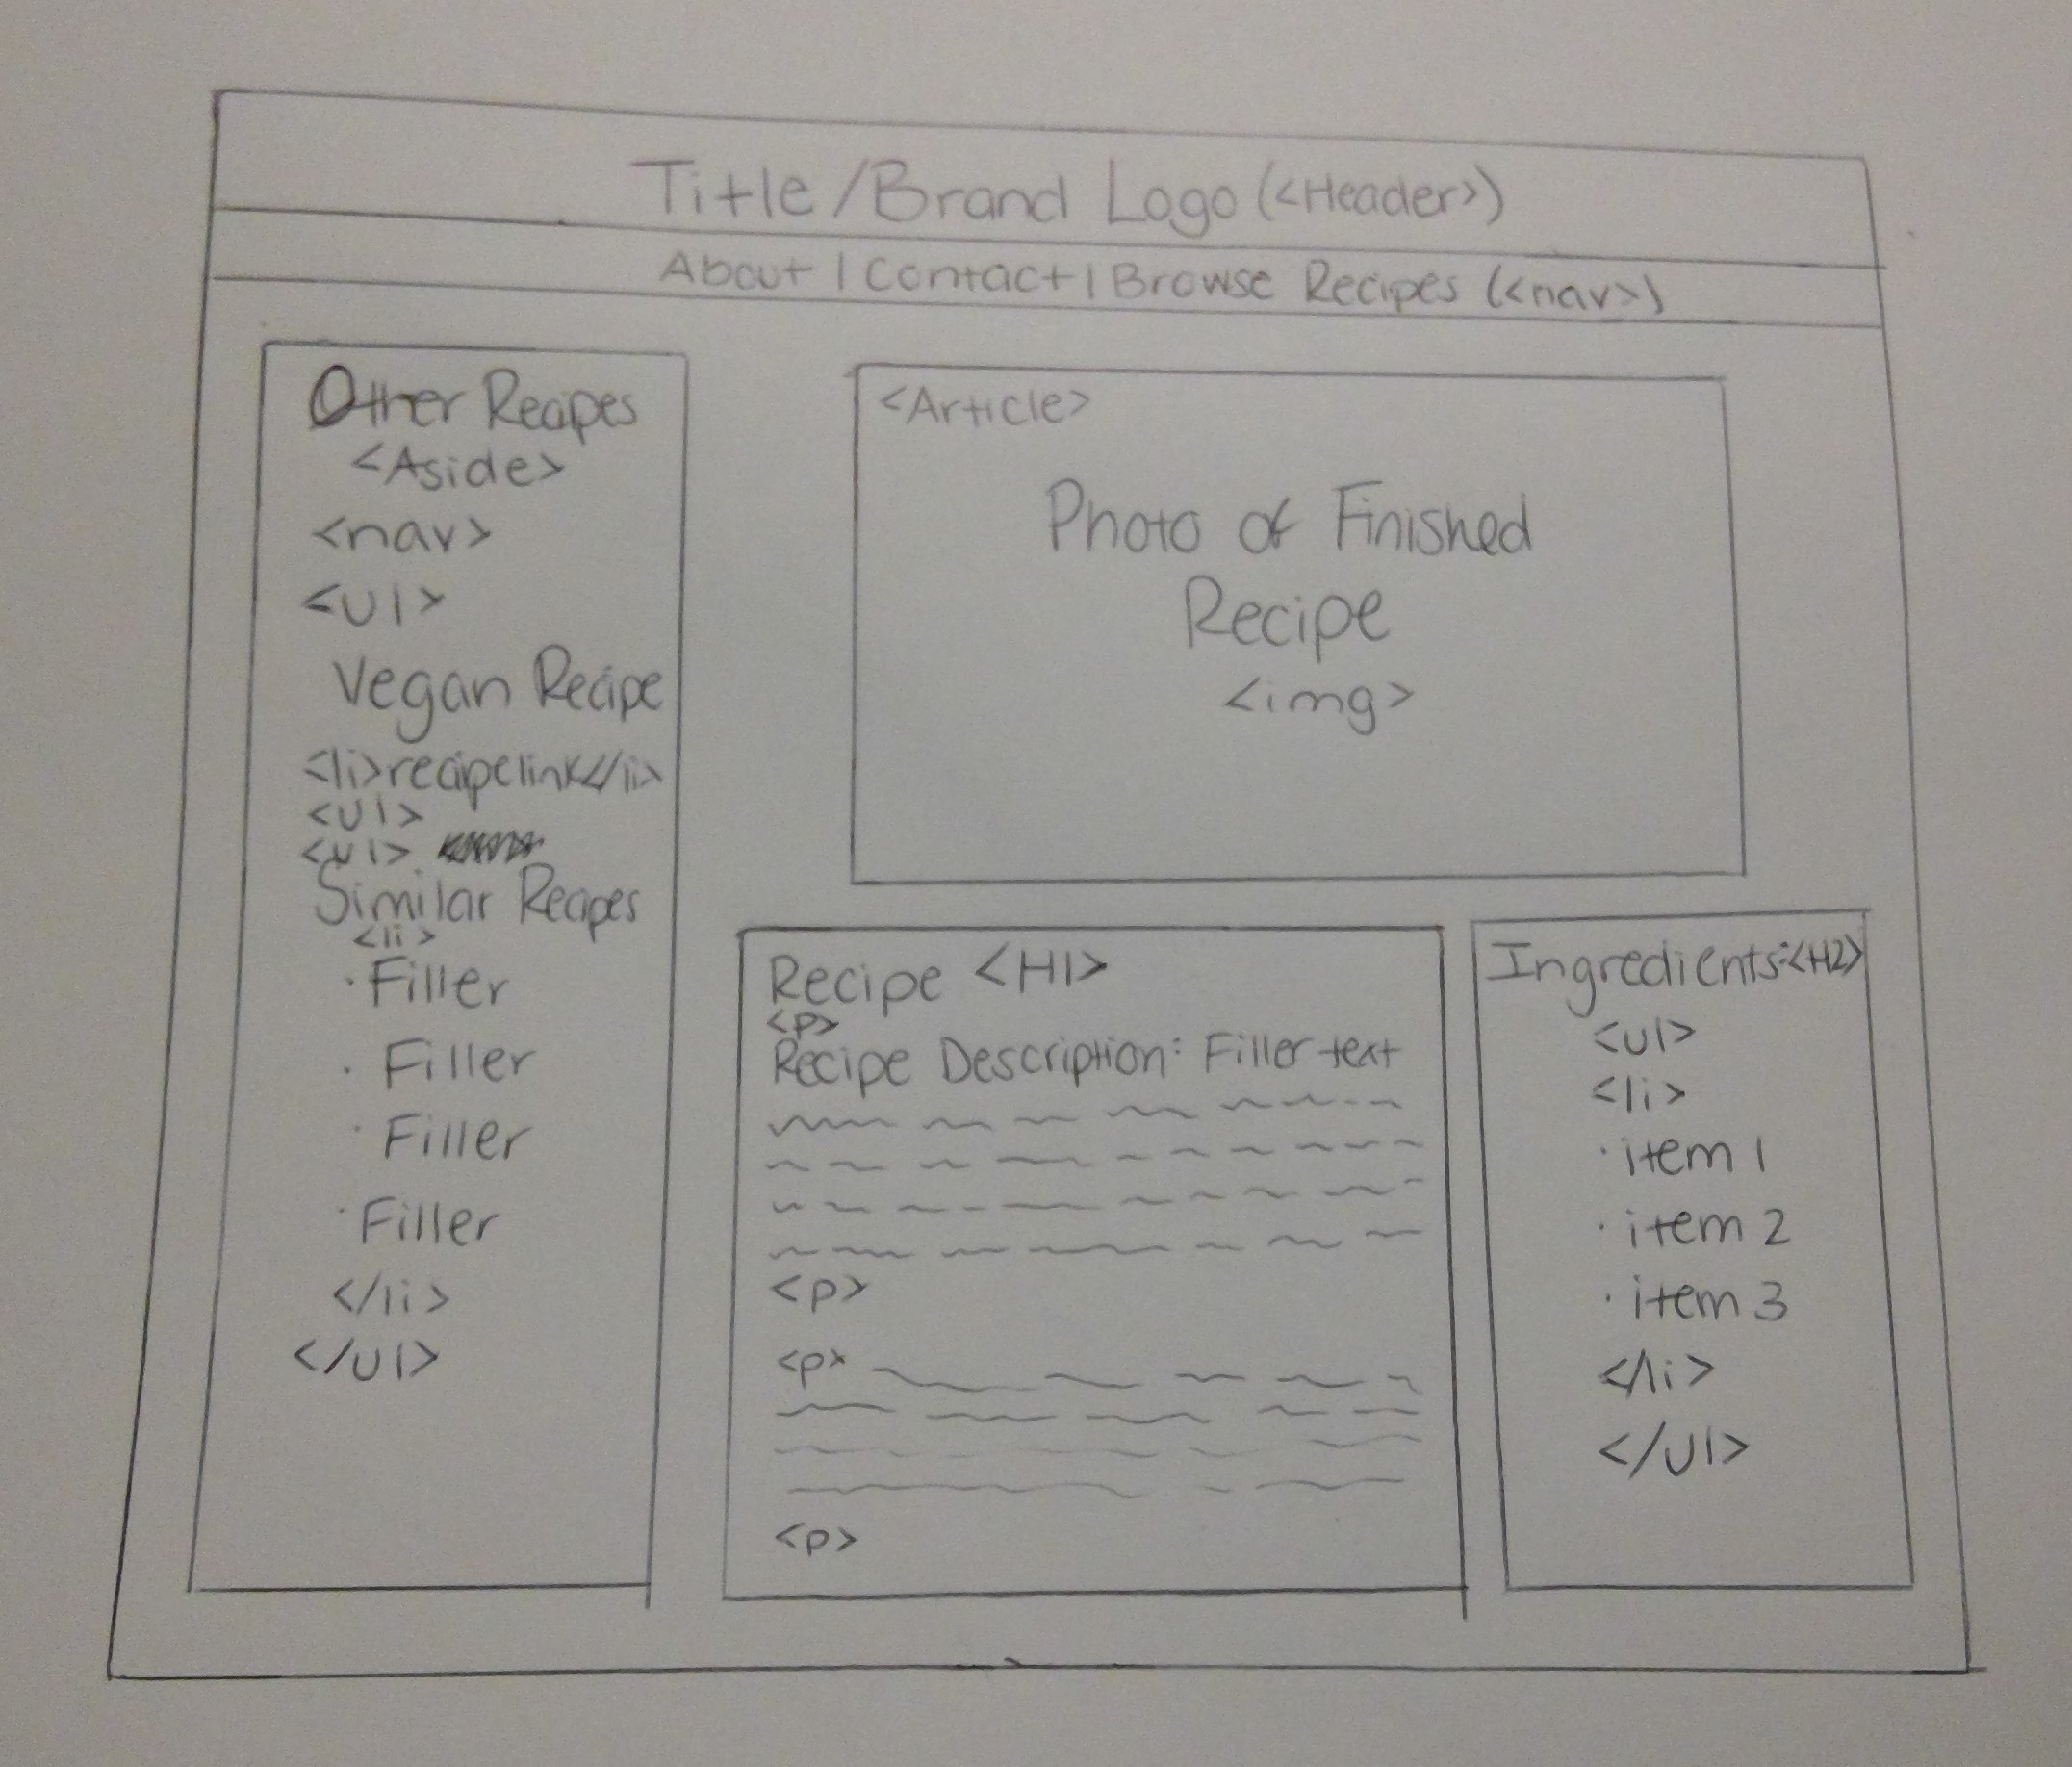 Title/Brand Logo (<Header>)
About | Contact | Browse Recipes (<nav>)
Other Recipes
<Aside>
<nav>
<ul>
Vegan Recipe
<li>recipelink</li>
<ul>
<ul>
Similar Recipes
<li>
· Filler
· Filler
· Filler
· Filler
</li>
</ul>
<Article>
Photo of Finished
Recipe
<img>
Recipe <H1>
<p>
Recipe Description: Filler text
<p>
<p>
<p>
Ingredients:<H2>
<ul>
<li>
· item 1
· item 2
· item 3
</li>
</ul>